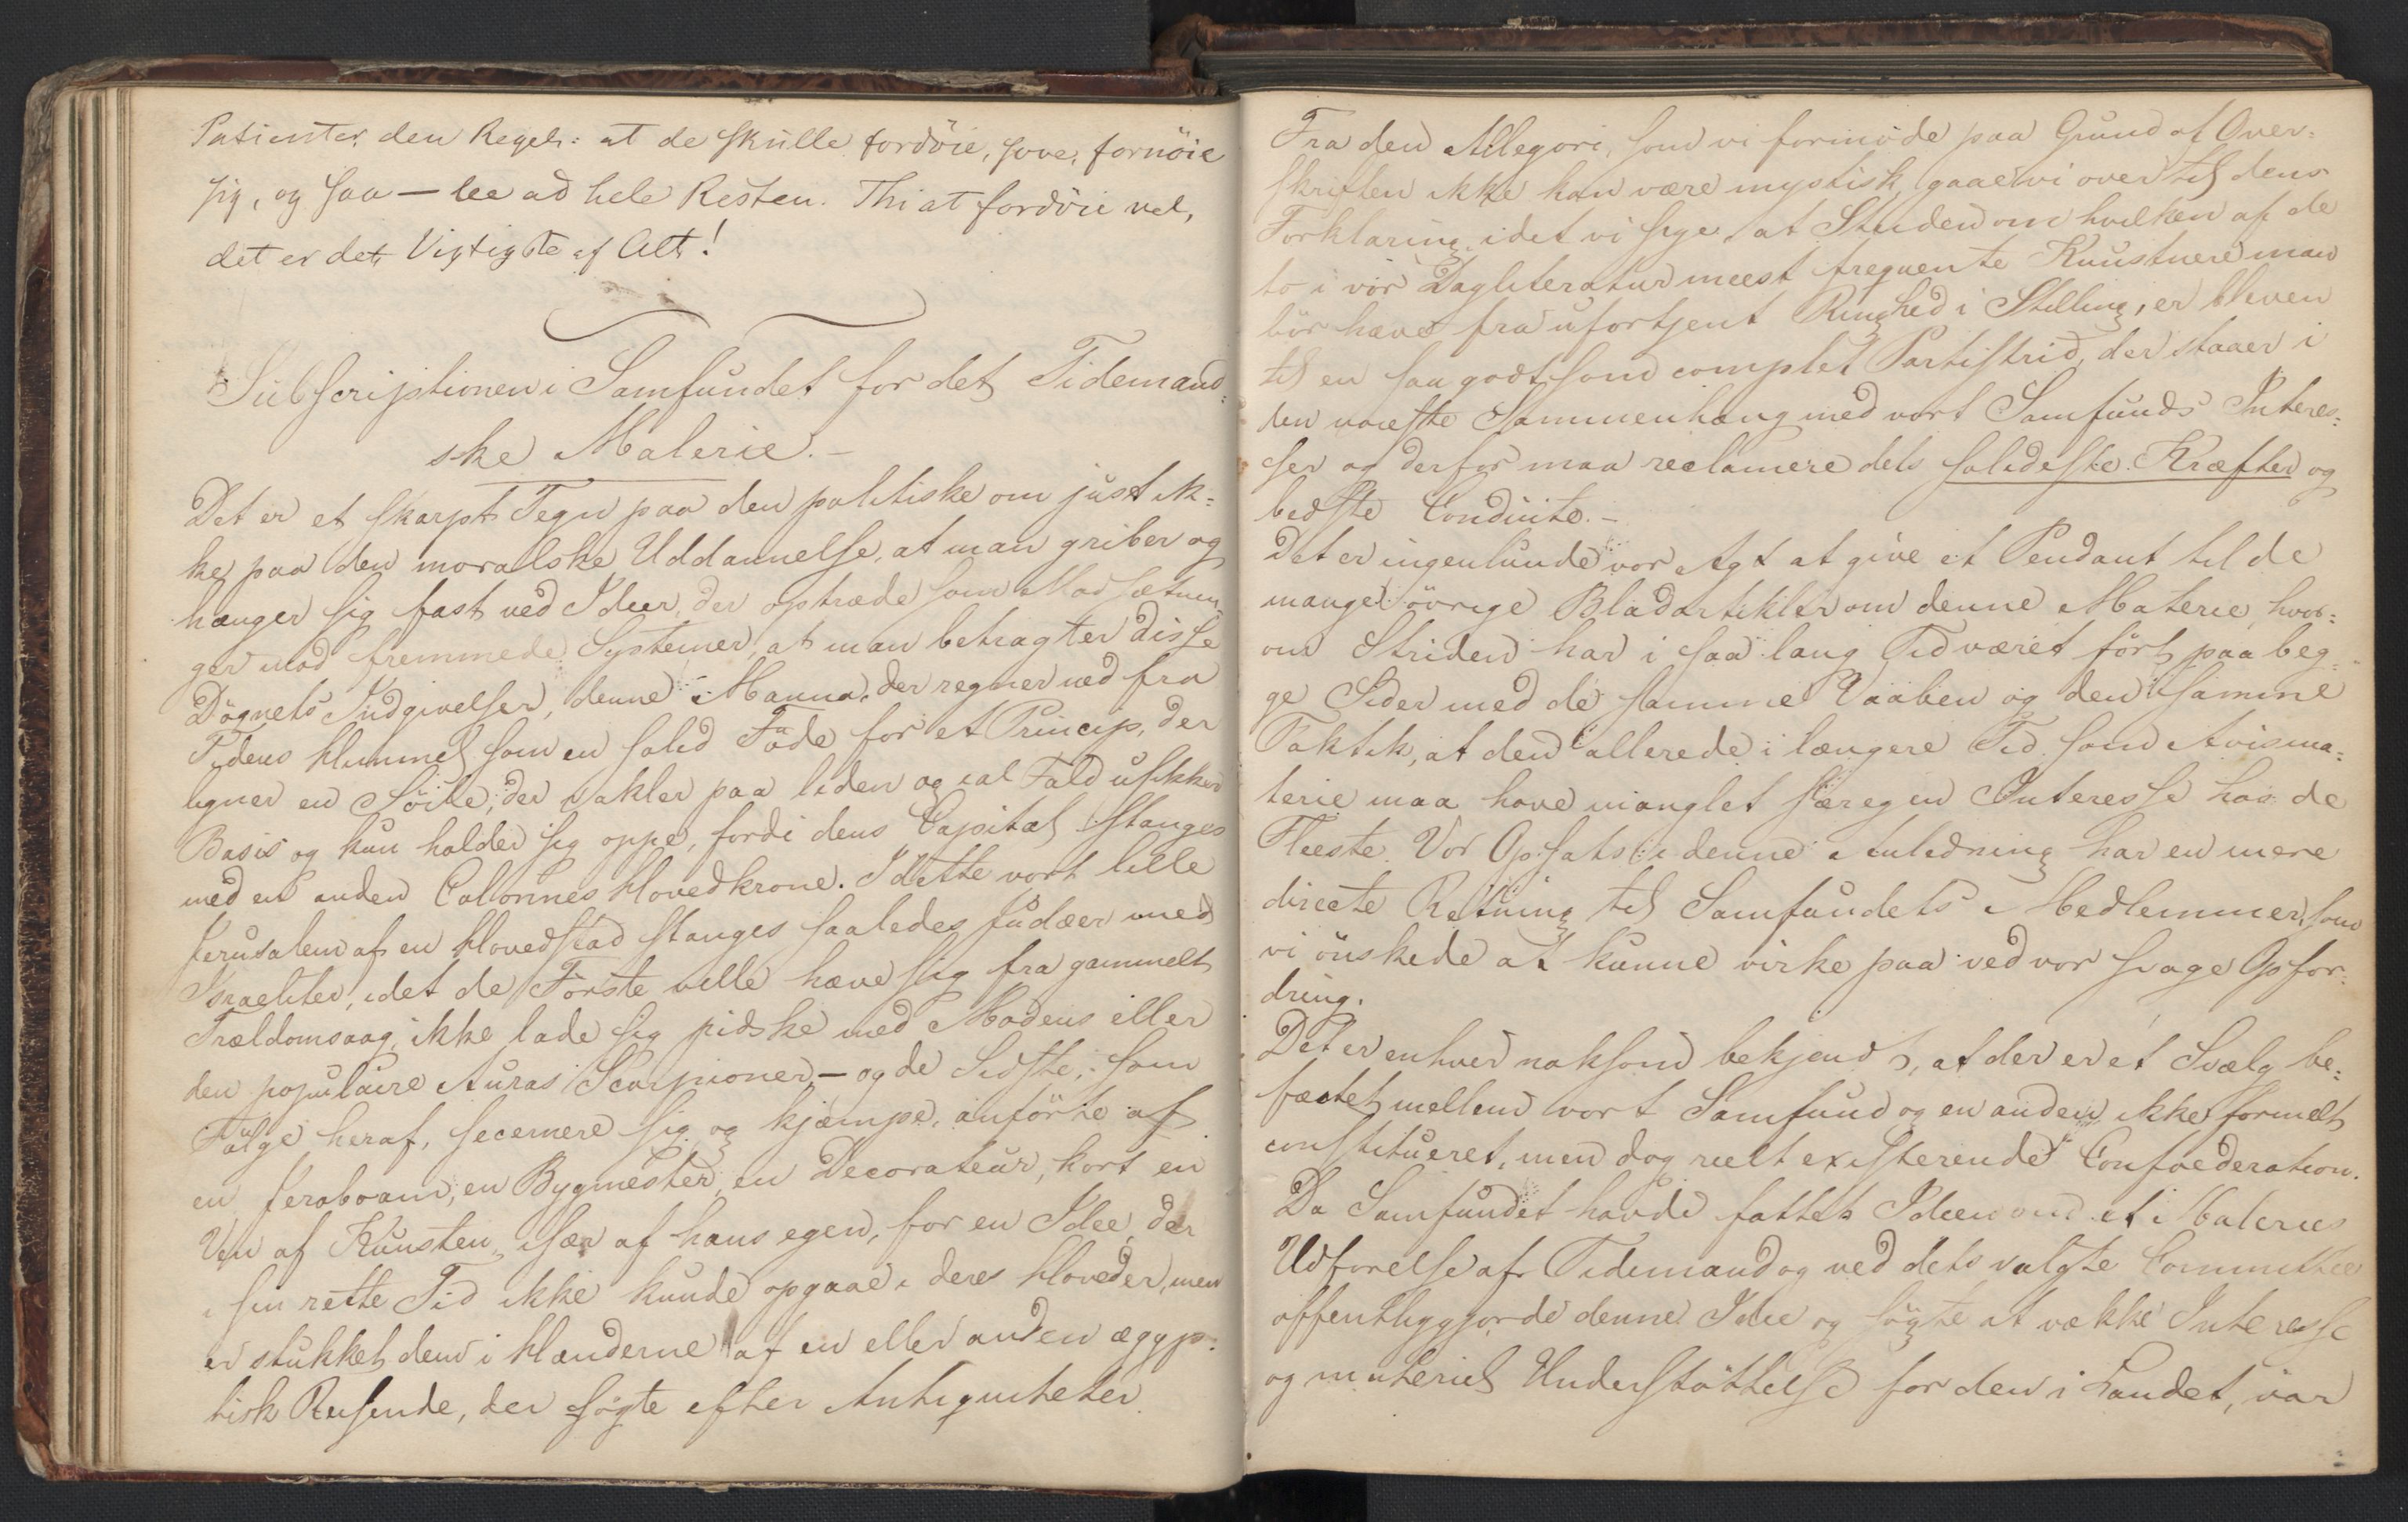 Patienter den Regel: at de skulle fordöie, sove, fornöie
sig, og saa — lee ad hele Resten. Thi at fordöie vel,
det er det Vigtigste af Alt!
Subscriptionen i Samfundet for det Tidemand-
ske Malerie. -
Det er et skarpt Tegn paa den politiske om just ik-
ke paa den moralske Uddannelse, at man griber og
hænger sig fast ved Ideer, der optræde som Modsætnin-
ger mod fremmede Systemer, at man betragter disse
Dögnets Indgivelser, denne Manna, der regner ned fra
Tidens Himmel som en solid Föde for et Princip, der
ligner en Söile, der vakler paa liden og ial Fald usikker
Basis og kun holder sig oppe, fordi dens Capitæl stanges
med en anden Colonnes Hovedkrone. I dette vort lille
Jerusalem af en Hovedstad stanges saaledes Judæer med
Israeliter, idet de Förste ville hæve sig fra gammelt
Trældomsaag, ikke lade sig pidske med Modens eller
den populaire Auras Scorpioner, - og de Sidste, som
Fölge heraf, secernere sig og kjæmpe, anförte af
en Jeroboam, en Bygmester, en Decorateur, kort en
Ven af Kunsten, især af hans egen, for en Idee, der
i sin rette Tid ikke kunde opgaae i deres Hoveder, men
er stukket dem i Hænderne af en eller anden ægyp-
tisk Reisende, der søgte efter Antiquiteter.
Fra den Allegori, som vi formode paa Grund af Over-
skriften ikke kan være mystisk, gaae vi over til dens
Forklaring, idet vi sige, at Striden om hvilken af de
to i vor Dagliteratur meest frequente Kunstnere man
bör hæve fra ufortjent Ringhed i Stilling, er bleven
til en saa godt som complet Partistrid, der staaer i
den nöieste Sammenhæng med vort Samfunds Interes-
ser og derfor maa reclamere dets solideste Kræfter og
bedste Conduite. -
Det er ingenlunde vor Agt at give et Pendant til de
mange övrige Bladartikler om denne Materie, hvor-
om Striden har i saa lang Tid været fört paa beg-
ge Sider med de samme Vaaben og den samme
Taktik, at den allerede i længere Tid som Avisma-
terie maa have manglet særegen Interesse hos de
Fleeste. Vor Opsats i denne Anledning har en mere
directe Retning til Samfundets Medlemmer, som
vi önskede at kunne virke paa ved vor svage Opfor-
dring.
Det er enhver noksom bekjendt, at der er et Svælg be-
fæstet mellem vort Samfund og en anden ikke formelt
constitueret, men dog reelt existerende Confoederation.
Da Samfundet havde fattet Ideen om et Maleries
Udforelse af Tidemand og ved dets valgte Committee
offentliggjorde denne Idee og sögte at vække Interesse
og materiel Understöttelse for den i Landet, var